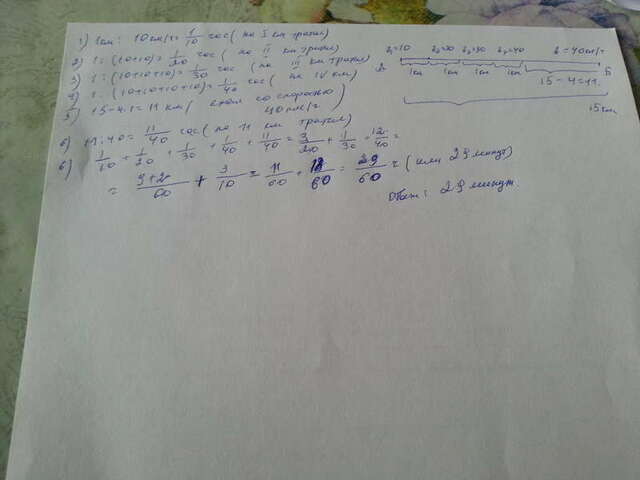 1) 1км: 10км/ч = 1/10 час (на I км тратил)
2) 1: (10+10) = 1/20 час (на II км тратил)
3) 1: (10+10+10) = 1/30 час (на III км тратил)
4) 1: (10+10+10+10) = 1/40 час (на IV км)
5) 15-4·1 = 11 км (ехал со скоростью
40 км/ч)
6) 11:40 = 11/40 час (на 11 км тратил)
6) 1/10 + 1/20 + 1/30 + 1/40 + 11/40 = 3/20 + 1/30 + 12/40 =
= 9+2/60 + 3/10 = 11/60 + 18/60 = 29/60 = (или 29 минут)
Ответ: 29 минут.
=10 =20 =30 =40 =40км/ч
А 1км 1км 1км 1км 15-4=11 Б
15км